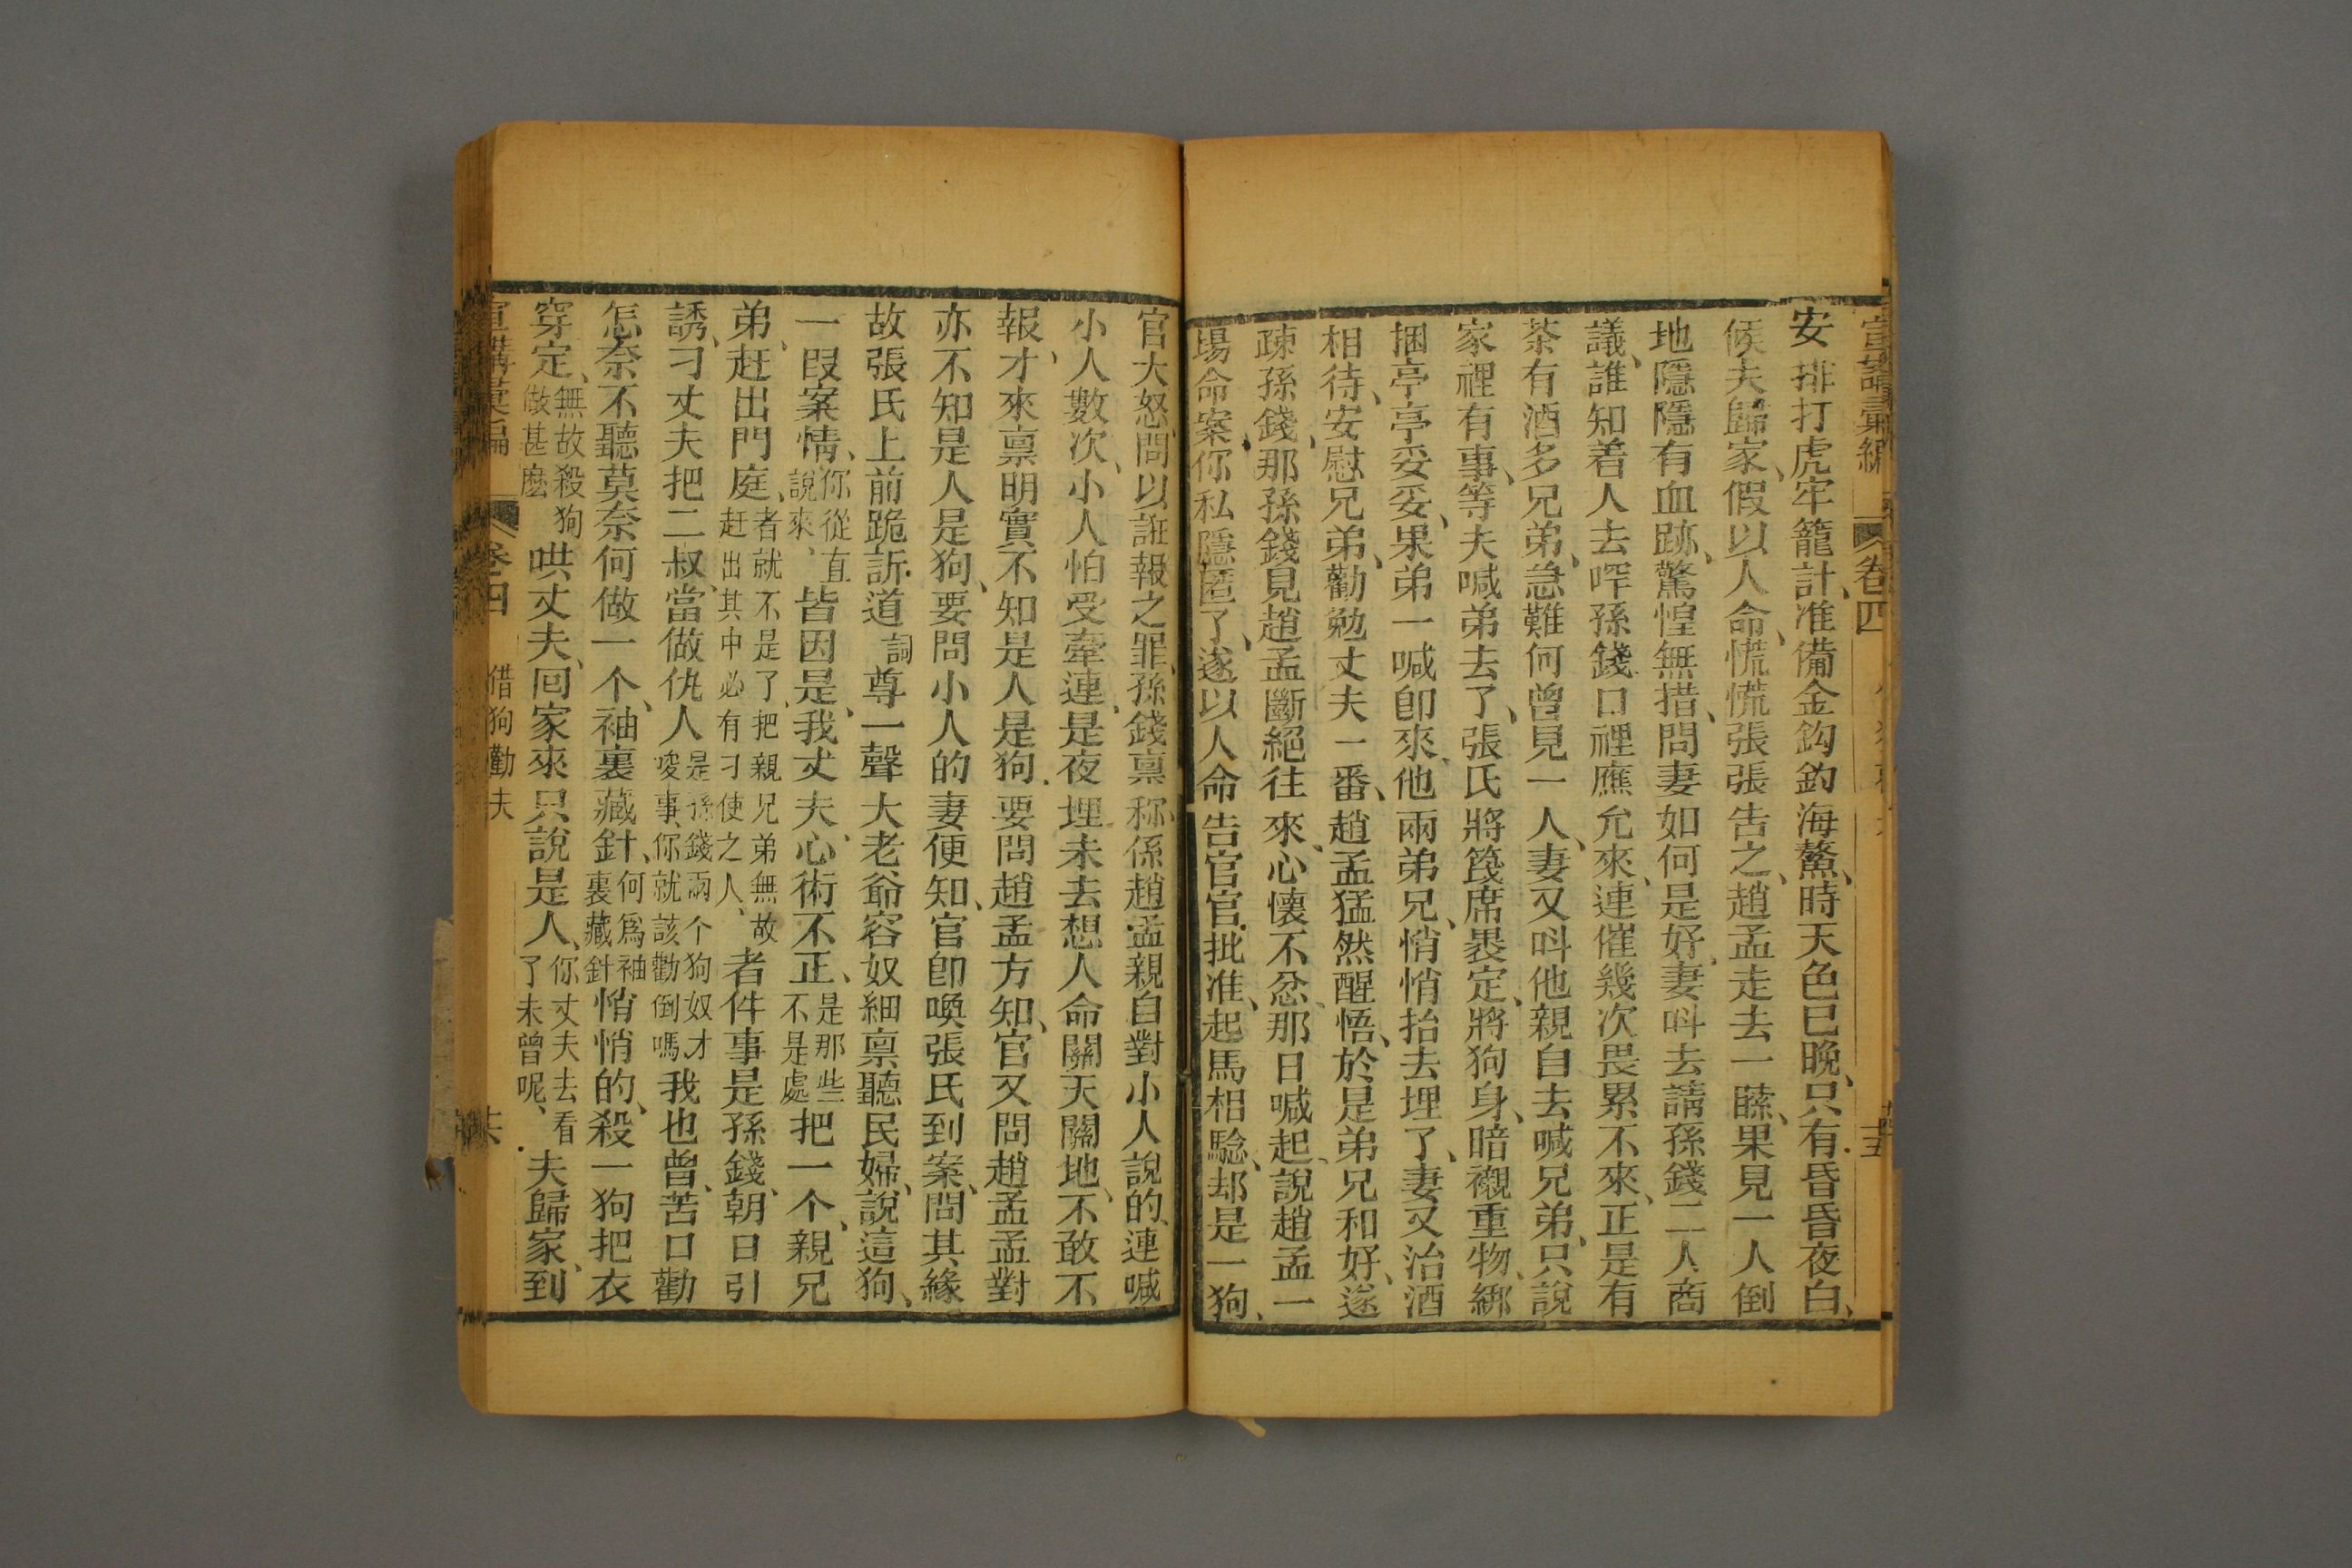 宣講彙編 卷四
安排打虎牢籠計、准備金鈎釣海鰲、時天色已晚、只有昏昏夜白、
候夫歸家、假以人命、慌慌張張告之、趙孟走去一䁱、果見一人倒
地隱隱有血跡、驚惶無措、問妻如何是好、妻呌去請孫錢二人商
議、誰知着人去喊孫錢口裡應允來、連催幾次畏累不來、正是有
茶有酒多兄弟、急難何曾見一人、妻又呌他親自去喊兄弟、只說
家裡有事、等夫喊弟去了、張氏將篾席褁定、將狗身、暗襯重物、綁
捆亭亭妥妥、果弟一喊卽來、他兩弟兄、悄悄抬去埋了、妻又治酒
相待、安慰兄弟、勸勉丈夫一番、趙孟猛然醒悟、於是弟兄和好、遂
疎孫錢、那孫錢見趙孟斷絕往來、心懷不忿、那日喊起、說趙孟一
塲命案、你私隱匿了、遂以人命告官、官批准、起馬相騐、却是一狗、
官大怒、問以誑報之罪、孫錢禀称係趙孟親自對小人說的、連喊
小人數次、小人怕受牽連、是夜埋未去、想人命關天關地、不敢不
報、才來禀明、實不知是人是狗、要問趙孟方知、官又問趙孟、孟對
亦不知是人是狗、要問小人的妻便知、官卽喚張氏到案、問其緣
故、張氏上前跪訴道 詞 尊一聲大老爺容奴細禀、聽民婦、說這狗、
一叚案情、你從直說來、皆因是、我丈夫、心術不正、是那些不是處 把一个、親兄
弟、赶出門庭、者就不是了、把親兄弟無故赶出其中必有刁使之人、 者件事是孫錢、朝日引
誘、刁丈夫把二叔、當做仇人 是孫錢兩个狗奴才唆事、你就該勸倒嗎 我也曾、苦口勸
怎奈不聽莫奈何做一个、袖裏藏針、何爲袖裏藏針 悄悄的、殺一狗把衣
穿定、無故殺狗做甚麽 哄丈夫、回家來只說是人、你丈夫去看了未曾呢、 夫歸家、到
宣講彙編 卷四 猎狗勸夫